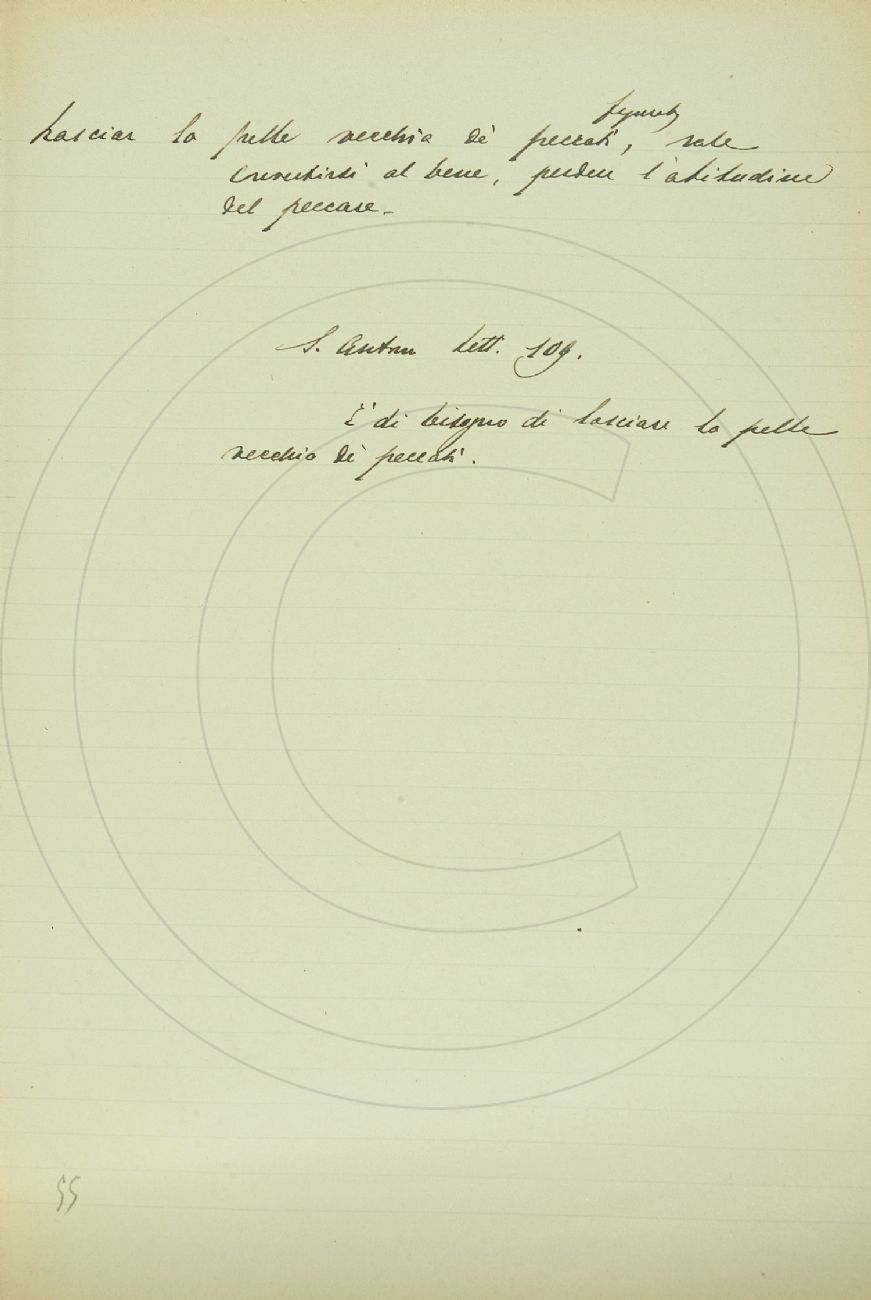 figuratₑ
Lasciar la pelle vecchia de' peccati, vale
convertirsi al bene, perdere l'abitudine
del peccare_
S. Anton Lett. 109.
E' di bisogno di lasciare la pelle
vecchia de' peccati.
55